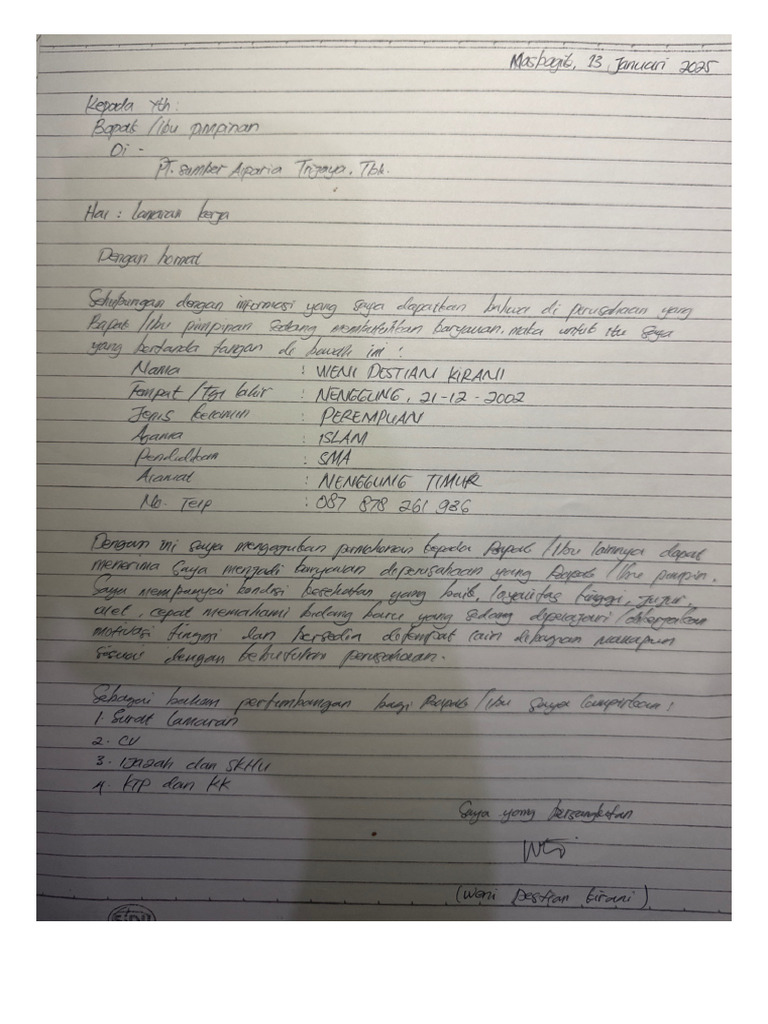 Masbagik, 13 Januari 2025
Kepada Yth:
Bapak /ibu pimpinan
Di -
PT. Sumber Alparia Trijaya, Tbk.
Hal : Lamaran kerja
Dengan hormat
Sehubungan dengan informasi yang saya dapatkan bahwa di perusahaan yang
Bapak /ibu pimpinan sedang membutuhkan karyawan, maka untuk itu saya
yang bertanda tangan di bawah ini :
Nama : WENI DESTIANI KIRANI
Tempat /Tgl lahir : NENGGUNG, 21-12-2002
Jenis kelamin : PEREMPUAN
Agama : ISLAM
Pendidikan : SMA
Alamat : NENGGUNG TIMUR
No. Telp : 087 878 261 936
Dengan ini saya mengajukan permohonan kepada Bapak /Ibu lainnya dapat
menerima saya menjadi karyawan diperusahaan yang Bapak /Ibu pimpin.
Saya mempunyai kondisi kesehatan yang baik, loyalitas tinggi, jujur,
ulet, cepat memahami bidang baru yang sedang dipelajari /dikerjakan
motivasi tinggi dan bersedia ditempat lain dibagian manapun
sesuai dengan kebutuhan perusahaan.
Sebagai bahan pertimbangan bagi Bapak /Ibu saya lampirkan :
1. Surat Lamaran
2. CV
3. Ijazah dan SKHU
4. KTP dan KK
Saya yang bersangkutan
(Weni Destian Kirani)
SIDU